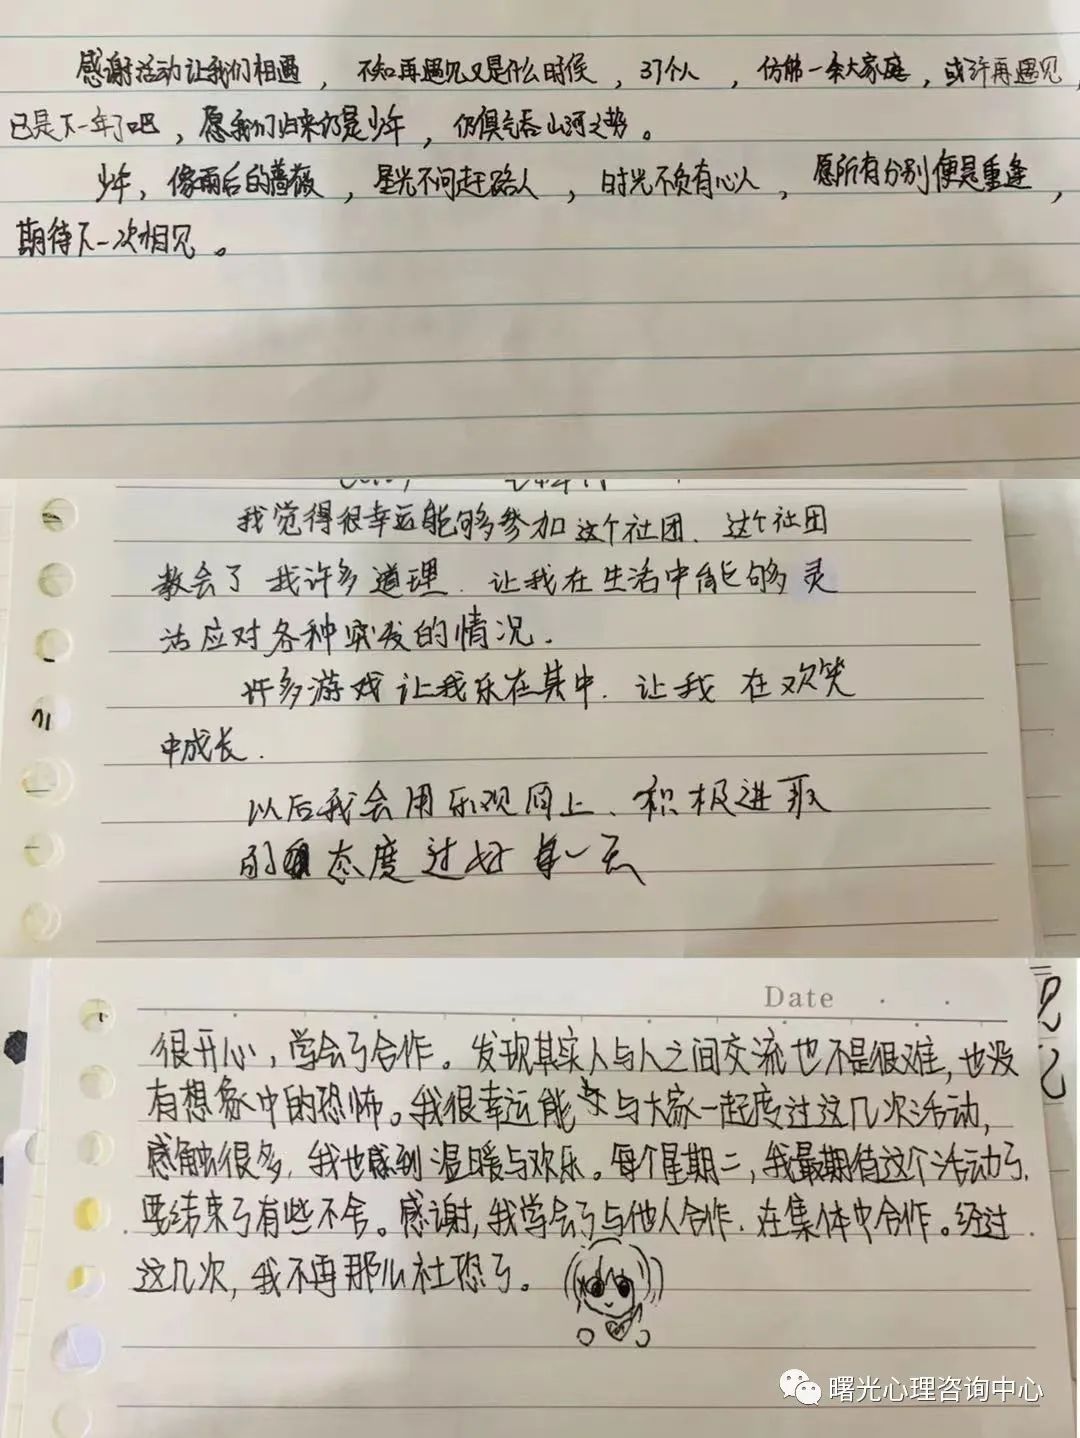 感谢活动让我们相遇，不知再遇见又是什么时候，37个人，仿佛一条大家庭，或许再遇见，
已是下一年了吧，愿我们归来仍是少年，仍俱气吞山河之势。
少年，像雨后的蔷薇，星光不问赶路人，时光不负有心人，愿所有分别便是重逢，
期待下一次相见。
我觉得很幸运能够参加这个社团．这个社团
教会了我许多道理．让我在生活中能够灵
活应对各种突发的情况．
许多游戏让我乐在其中．让我在欢笑
中成长．
以后我会用乐观向上、积极进取
的态度过好每一天
Date
很开心，学会了合作。发现其实人与人之间交流也不是很难，也没
有想象中的恐怖。我很幸运能与大家一起度过这几次活动，
感触很多，我也感到温暖与欢乐。每个星期二，我最期待这个活动了，
要结束了有些不舍。感谢，我学会了与他人合作．在集体中合作。经过
这几次，我不再那么社恐了。
曙光心理咨询中心